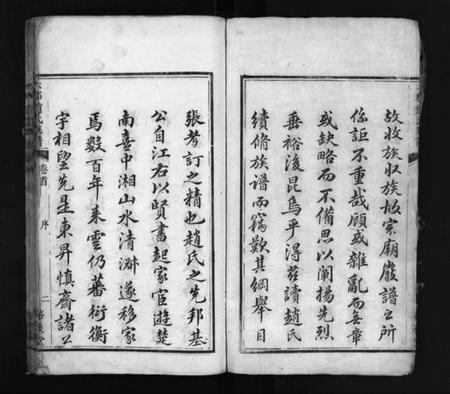 故收族收族故宗廟嚴譜之所
係詎不重哉顧或雜亂而無章
或缺略而不備思以闡揚先烈
垂裕後昆烏乎得茲讀趙氏
續脩族譜而竊歎其綱舉目
張考訂之精也趙氏之先邦基
公自江右以賢書起家宦遊楚
南喜中湘山水清澌遂移家
焉數百年來雲仍蕃衍衡
宇相望先是東昇慎齋諸公
卷首
序
二